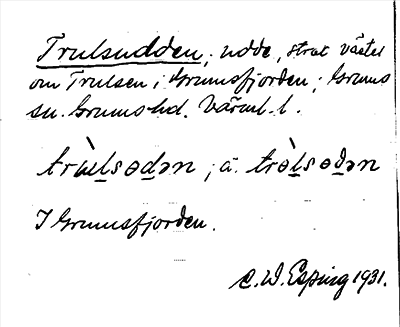 Trulsudden, udde, strax väster
om Trulsen i Grumsfjorden; Grums
sn. Grums hd. Värml. l.
trùlsɵdən; ä. trɵ̀lsɵdən
I Grumsfjorden.
C. W. Esping 1931.